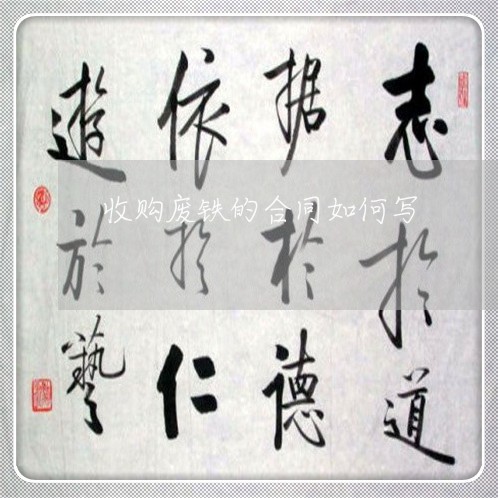 志於道
据於德
依於仁
遊於藝
收购废铁的合同如何写